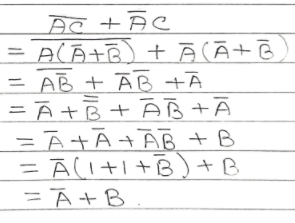 A̅C̅ + A̅C
= A̅(̅A̿+̅B̿)̅ + A̅(A̅+B̅)
= A̅B̿ + A̅B̅ + A̅
= A̅ + B̿ + A̅B̅ + A̅
= A̅ + A̅ + A̅B̅ + B
= A̅(1+1+B̅) + B
= A̅ + B.